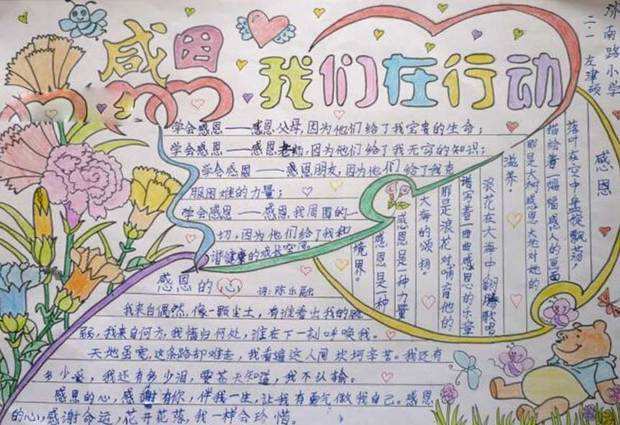 感恩
我们在行动
济南路小学
二.1 左津硕
学会感恩——感恩父母,因为他们给了我宝贵的生命;
学会感恩——感恩老师,因为他们给了我无穷的知识;
学会感恩——感恩朋友,因为他们给了我克
服困难的力量;
学会感恩——感恩我周围的一
切,因为他们给了我和
谐健康的成长空间。
感恩
落叶在空中盘旋飘动,
描绘着一幅幅感人的画面
那是大树感恩大地对她的
滋养;
浪花在大海中翻腾歌唱
谱写着一曲曲感恩的乐章
那是浪花对哺育他的
大海的颂扬。
感恩是一种力量
感恩是一种
境界。
感恩的心
诗:陈乐融
我来自偶然,像一颗尘土,有谁看出我的脆
弱,我来自何方,我情归何处,谁在下一刻呼唤我。
天地虽宽,这条路却难走,我看遍这人间坎坷辛苦。我还有
多少爱,我还有多少泪,要苍天知道,我不认输。
感恩的心,感谢有你,伴我一生,让我有勇气做我自己。感恩
的心,感谢命运,花开花落,我一样会珍惜。